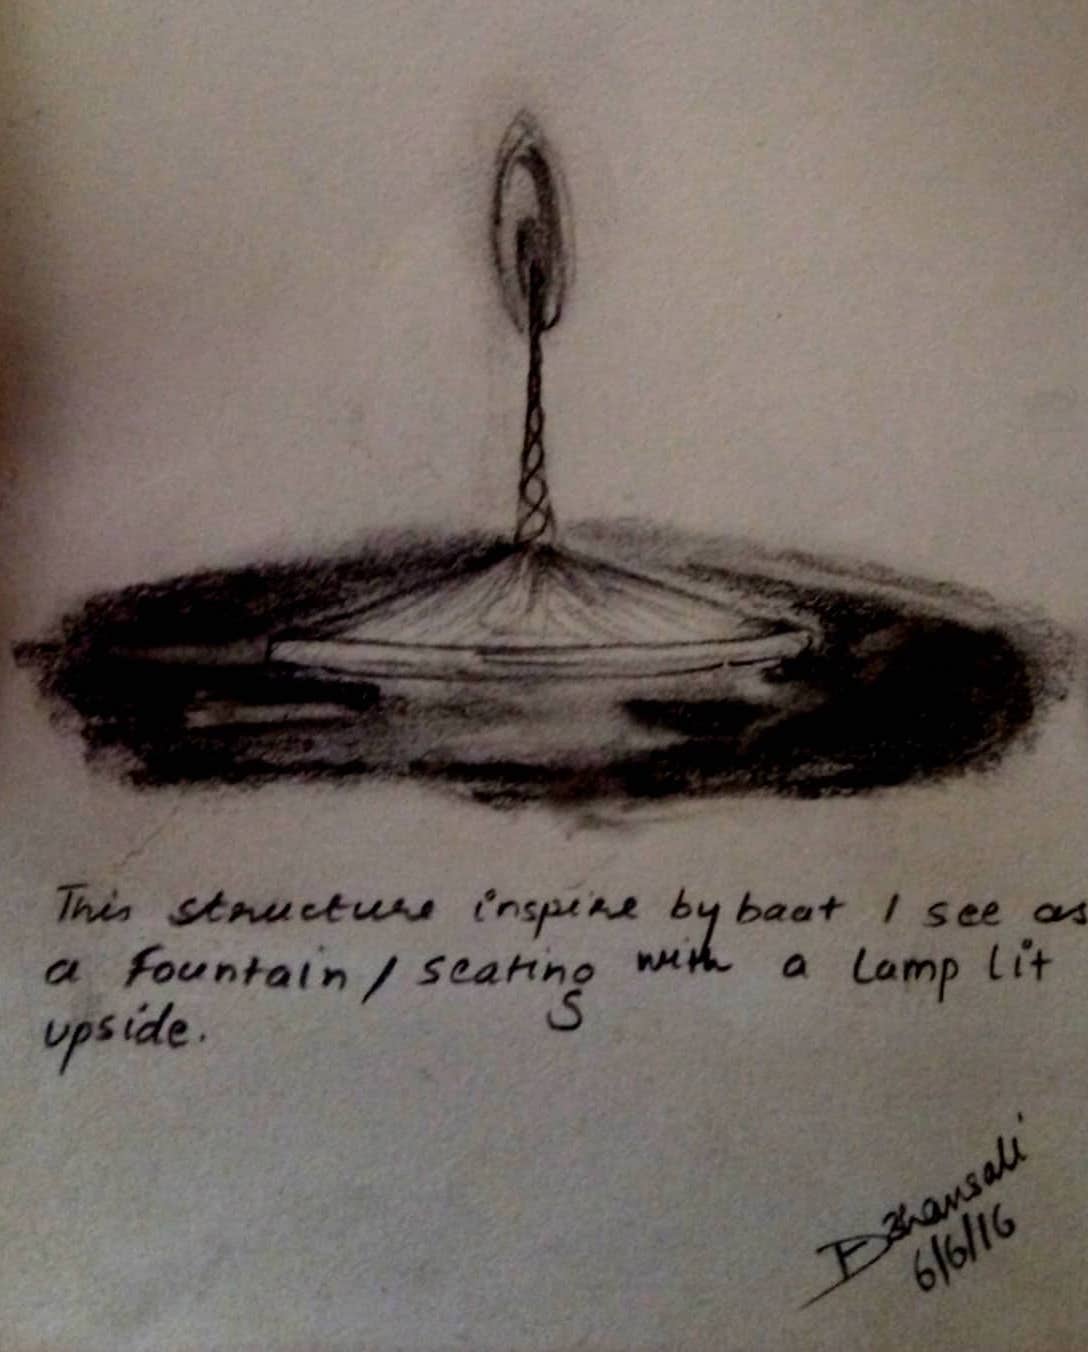 This structure inspire by baat I see as
a Fountain / seating with a lamp lit
S
upside.
Bhansali
6/6/16